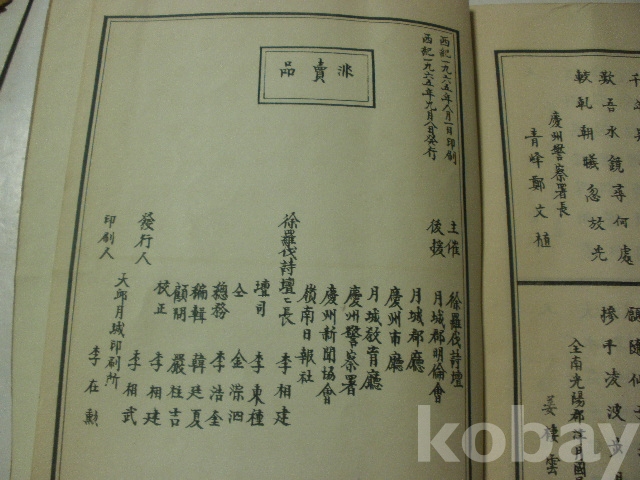 千
歎吾水鏡尋何處
較軋朝曦忽放光
慶州警察署長
青峰鄭文植
顧隨仙
摻手凌波步月
全南光陽郡津月國
姜棲雲
西紀一九六五年八月一日印刷
西紀一九六五年九月八日發行
非賣品
主催 徐羅伐詩壇
後援 月城郡明倫會
月城郡廳
慶州市廳
月城敎育廳
慶州警察署
慶州新聞協會
嶺南日報社
徐羅伐詩壇壇長 李相建
壇司 李東種
仝 金淙泗
總務 李浩奎
編輯 韓廷夏
顧問 嚴柱吉
校正 李相建
發行人 李相武
印刷人 大邱月城印刷所
李在勲
kobay